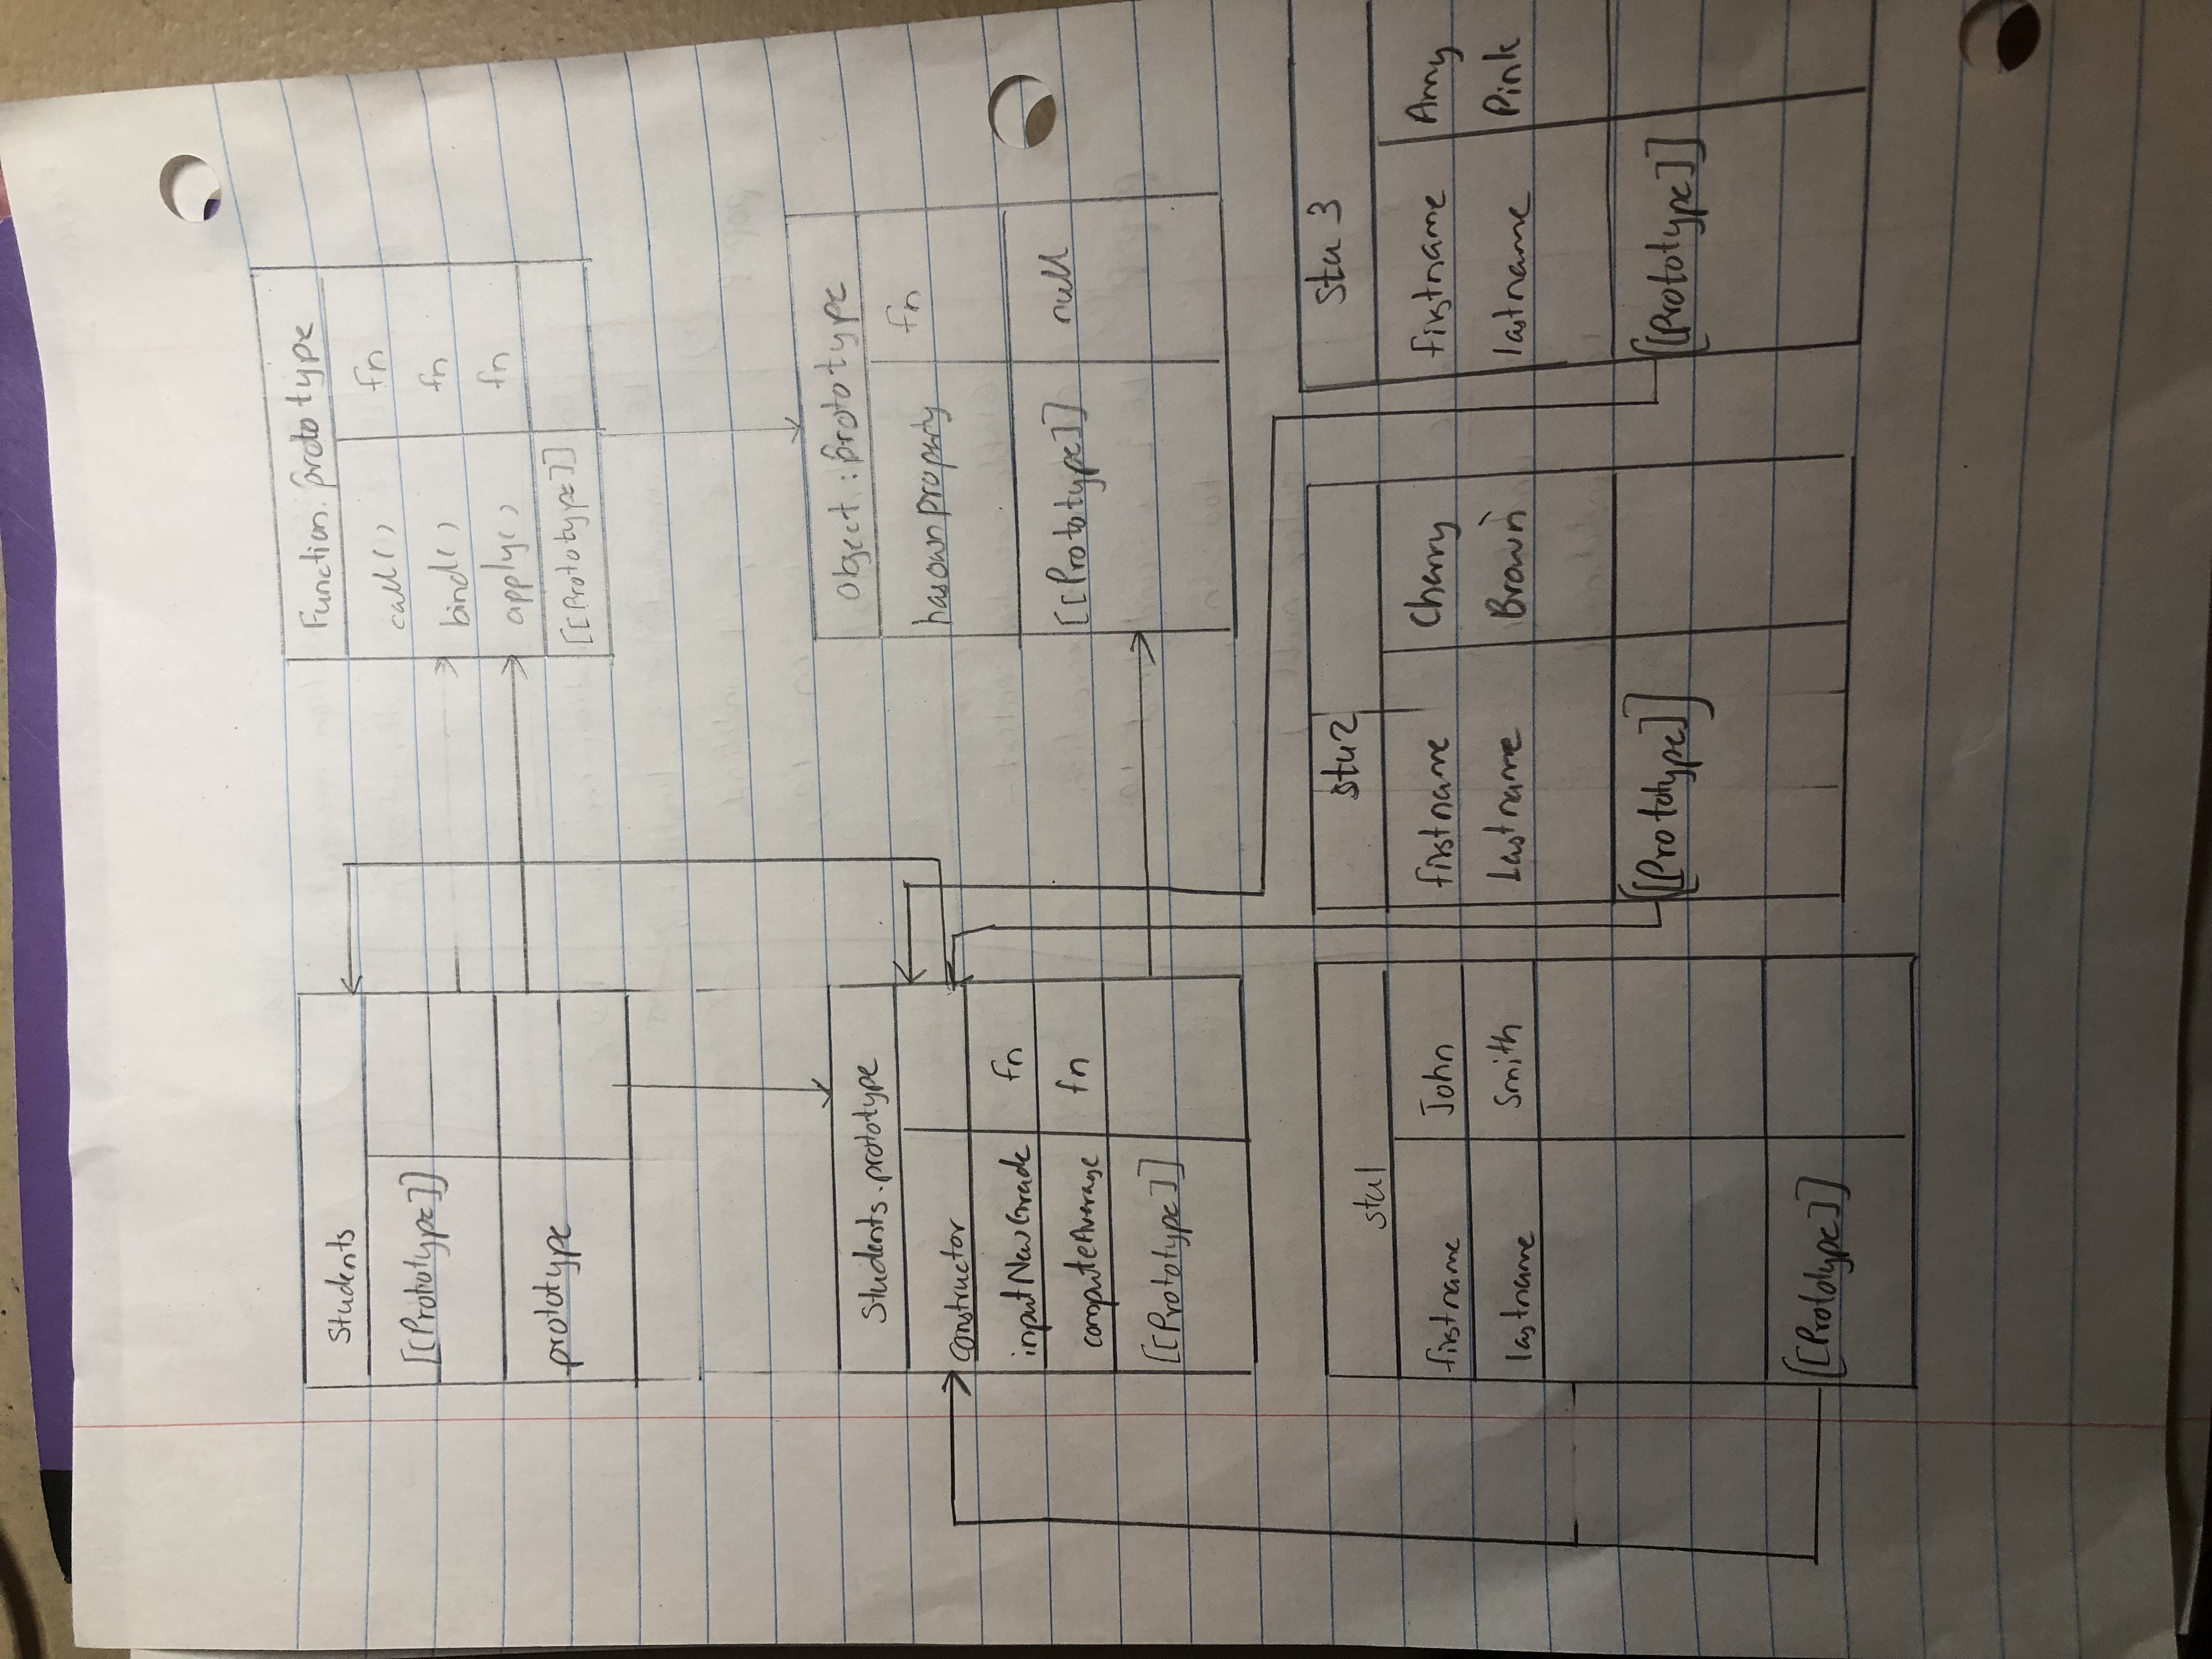 Students
[[Prototype]]
prototype
Function.prototype
call() fn
bind() fn
apply() fn
[[Prototype]]
Students.prototype
constructor
inputNewGrade fn
computeAverage fn
[[Prototype]]
Object:prototype
hasownproperty fn
[[Prototype]] null
stu1
firstname John
lastname Smith
[[Prototype]]
stu2
firstname Cherry
Lastname Brown
[[Prototype]]
stu 3
firstname Amy
lastname Pink
[[Prototype]]